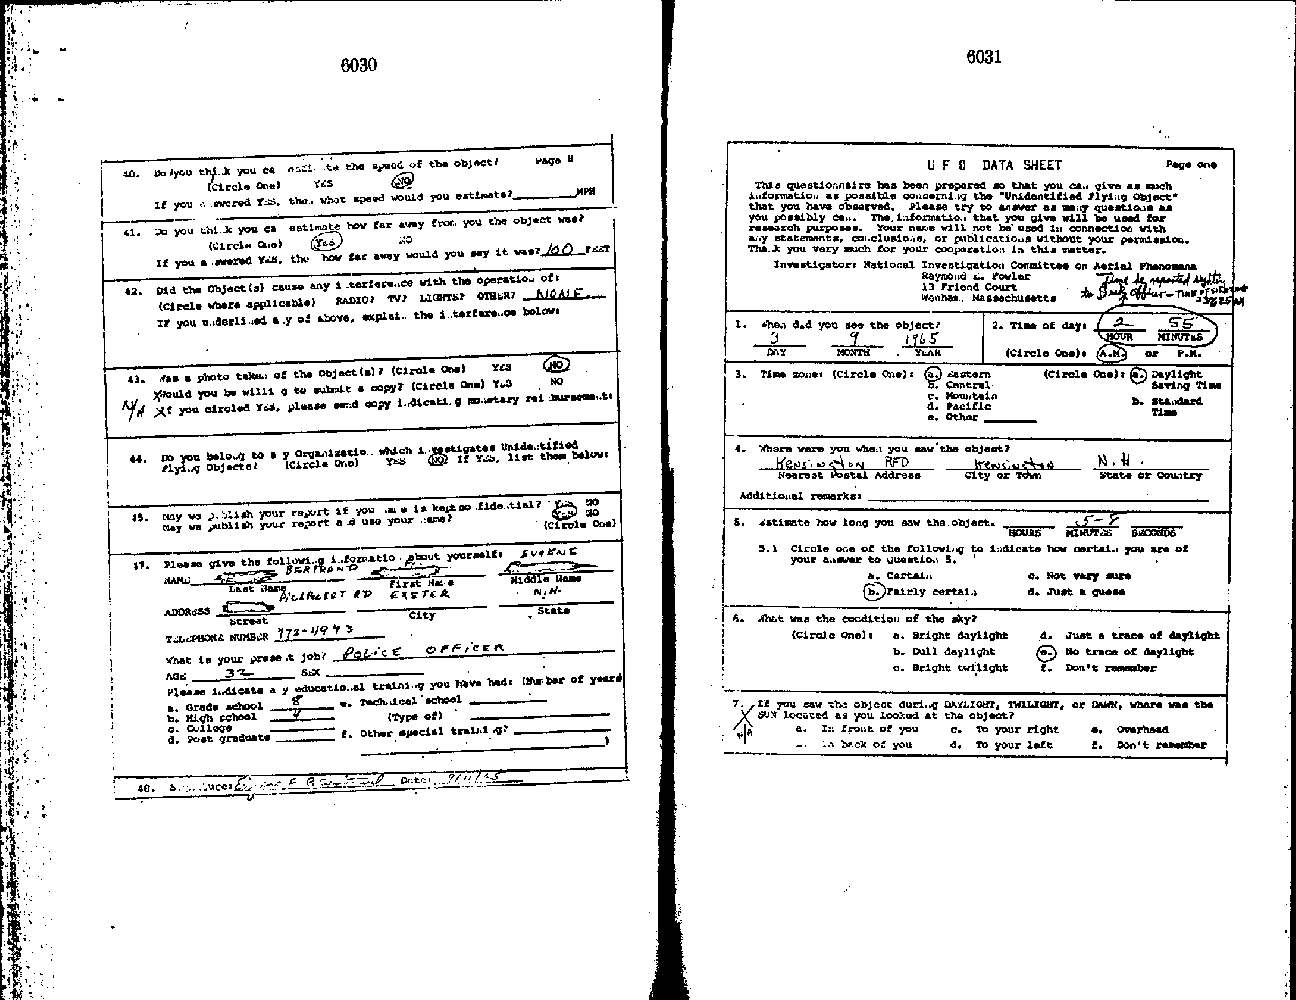 6030
40. Do you think you can estimate the speed of the object? Page 8
(Circle One) YES NO
If you answered YES, then what speed would you estimate? MPH
41. Do you think you can estimate how far away from you the object was?
(Circle One) YES NO
If you answered YES, then how far away would you say it was? 100 FEET
42. Did the Object(s) cause any interference with the operation of:
(Circle where applicable) RADIO? TV? LIGHTS? OTHER? NONE
If you underlined any of above, explain the interference below:
43. Was a photo taken of the Object(s)? (Circle One) YES NO
Would you be willing to submit a copy? (Circle One) YES NO
N/A If you circled Yes, please send copy indicating monetary reimbursement:
44. Do you belong to any Organization which investigates Unidentified
Flying Objects? (Circle One) YES NO If YES, list them below:
45. May we publish your report if your name is kept confidential? YES NO
May we publish your report and use your name? YES NO
(Circle One)
47. Please give the following information about yourself: EUGENE
NAME BERTRAND F
Last Name First Name Middle Name
RD EXETER N.H.
ADDRESS
Street City State
TELEPHONE NUMBER 772-4993
What is your present job? POLICE OFFICER
AGE 32 SEX
Please indicate any educational training you have had: (Number of years
a. Grade school 8 e. Technical school
b. High school 4 (Type of)
c. College
d. Post graduate f. Other special training?
)
48. Signature: Eugene F Bertrand Date: 9/11/65
6031
U F O DATA SHEET Page one
This questionnaire has been prepared so that you can give as much
information as possible concerning the "Unidentified Flying Object"
that you have observed. Please try to answer as many questions as
you possibly can. The information that you give will be used for
research purposes. Your name will not be used in connection with
any statements, conclusions, or publications without your permission.
Thank you very much for your cooperation in this matter.
Investigator: National Investigation Committee on Aerial Phenomena
Raymond E. Fowler
13 Friend Court
Wenham, Massachusetts
Time he reported sighting
to Desk Officer - TIME OF SIGHTING
1. When did you see the object? 2. Time of day: 2 55
3 9 1965 HOUR MINUTES
DAY MONTH YEAR (Circle One): A.M. or P.M.
3. Time zone: (Circle One): a. Eastern (Circle One): a. Daylight
b. Central Saving Time
c. Mountain
d. Pacific b. Standard
e. Other Time
4. Where were you when you saw the object?
KENSINGTON RFD KENSINGTON N.H.
Nearest Postal Address City or Town State or Country
Additional remarks:
5. Estimate how long you saw the object. 5-8
HOURS MINUTES SECONDS
5.1 Circle one of the following to indicate how certain you are of
your answer to Question 5.
a. Certain c. Not very sure
b. Fairly certain d. Just a guess
6. What was the condition of the sky?
(Circle One): a. Bright daylight d. Just a trace of daylight
b. Dull daylight e. No trace of daylight
c. Bright twilight f. Don't remember
7. If you saw the object during DAYLIGHT, TWILIGHT, or DAWN, where was the
SUN located as you looked at the object?
N/A a. In front of you c. To your right e. Overhead
b. In back of you d. To your left f. Don't remember